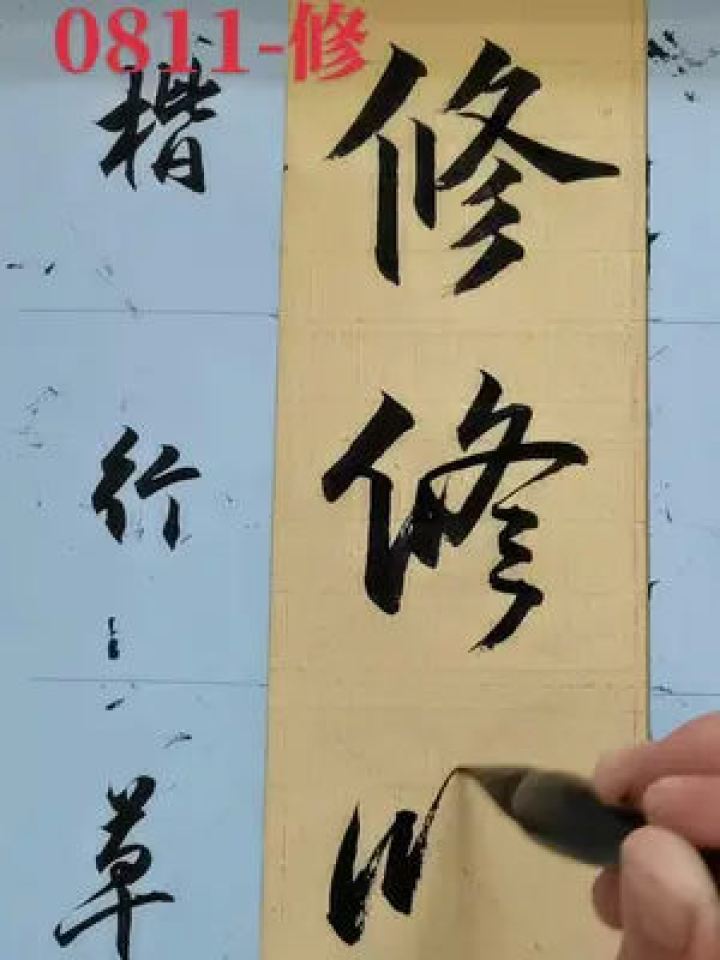 0811-修
楷 修
行 修
草